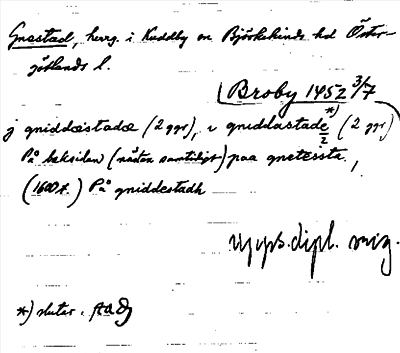 Gnestad, herrg. i Kuddby sn Björkekinds hd Öster-
götlands l.
Broby 1452 3/7
j gniddæstadæ (2 ggr), i gniddastade *) (2 ggr)
På baksidan (nästan samtidigt) paa gnetessta,
(1600 t.) På gniddestadh
Upps. dipl. mig.
*) slutar :